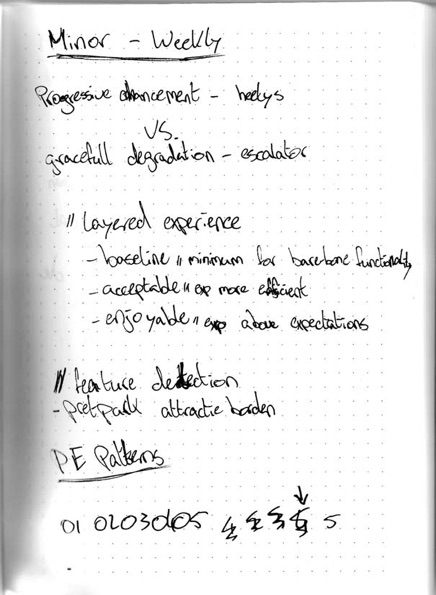 Minor - Weekly
Progressive enhancement - heelys
VS.
gracefull degradation - escalator
// layered experience
- baseline // minimum for barebone functionality
- acceptable // exp more efficient
- enjoyable // exp above expectations
// feature detection
- pretpark attractie borden
PE Patterns
01 02 03 04 05 5